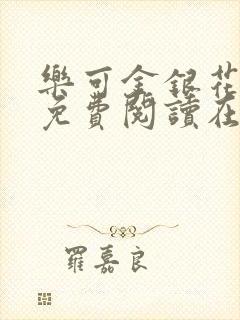 樂可金銀花
免費閱讀在
羅嘉良